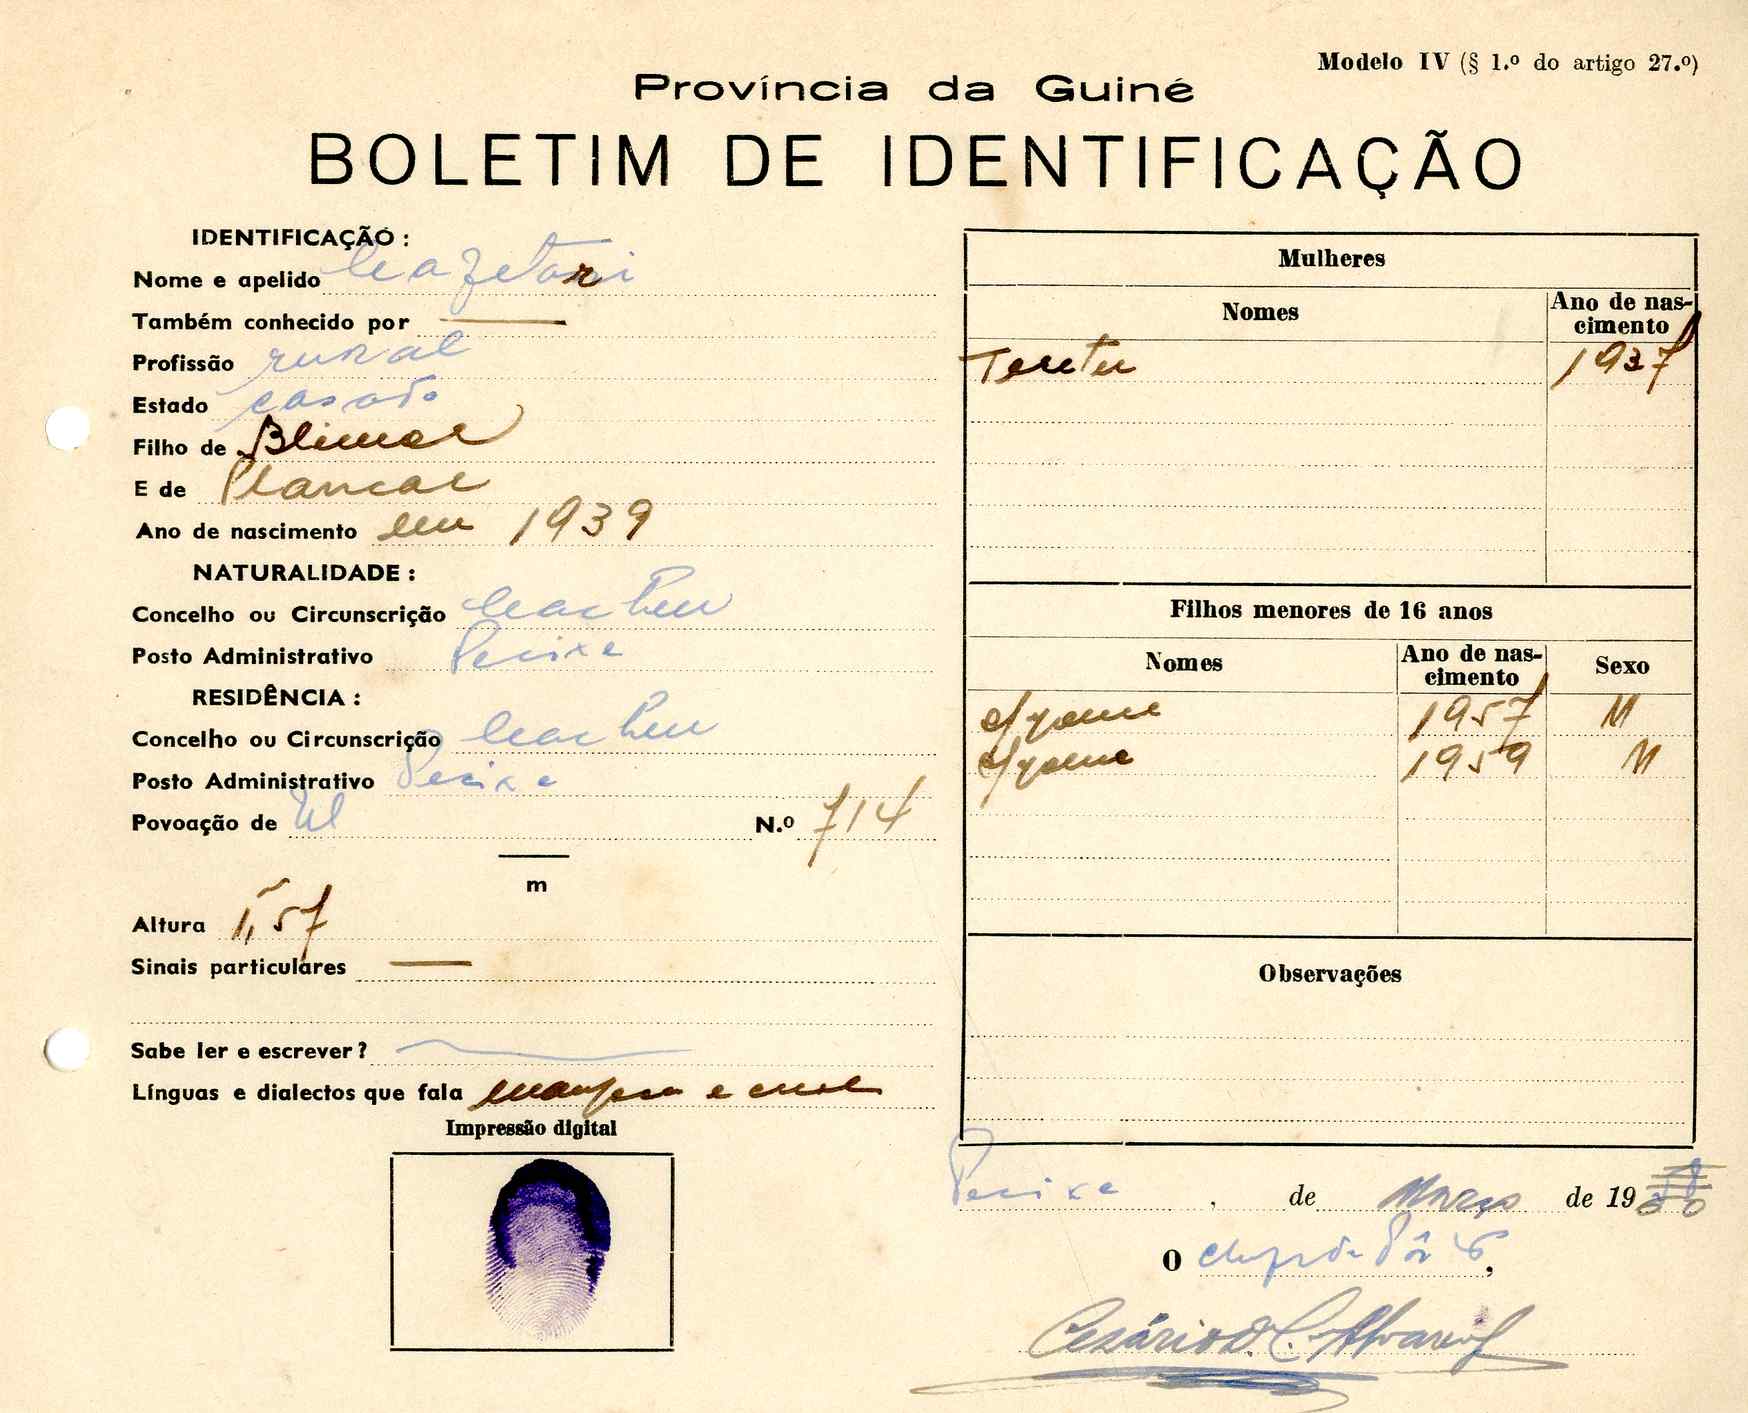 Modelo IV (§ 1.º do artigo 27.º)
Província da Guiné
BOLETIM DE IDENTIFICAÇÃO
IDENTIFICAÇÃO :
Nome e apelido
Também conhecido por
Profissão rural
Estado casado
Filho de
E de
Ano de nascimento em 1939
NATURALIDADE :
Concelho ou Circunscrição
Posto Administrativo Pecixe
RESIDÊNCIA :
Concelho ou Circunscrição
Posto Administrativo Pecixe
Povoação de N.º 714
m
Altura 1,57
Sinais particulares
Sabe ler e escrever ?
Línguas e dialectos que fala e
Impressão digital
Mulheres
Nomes
Ano de nas-
cimento
1937
Filhos menores de 16 anos
Nomes
Ano de nas-
cimento
Sexo
1957 M
1959 M
Observações
Pecixe , de Março de 19
O